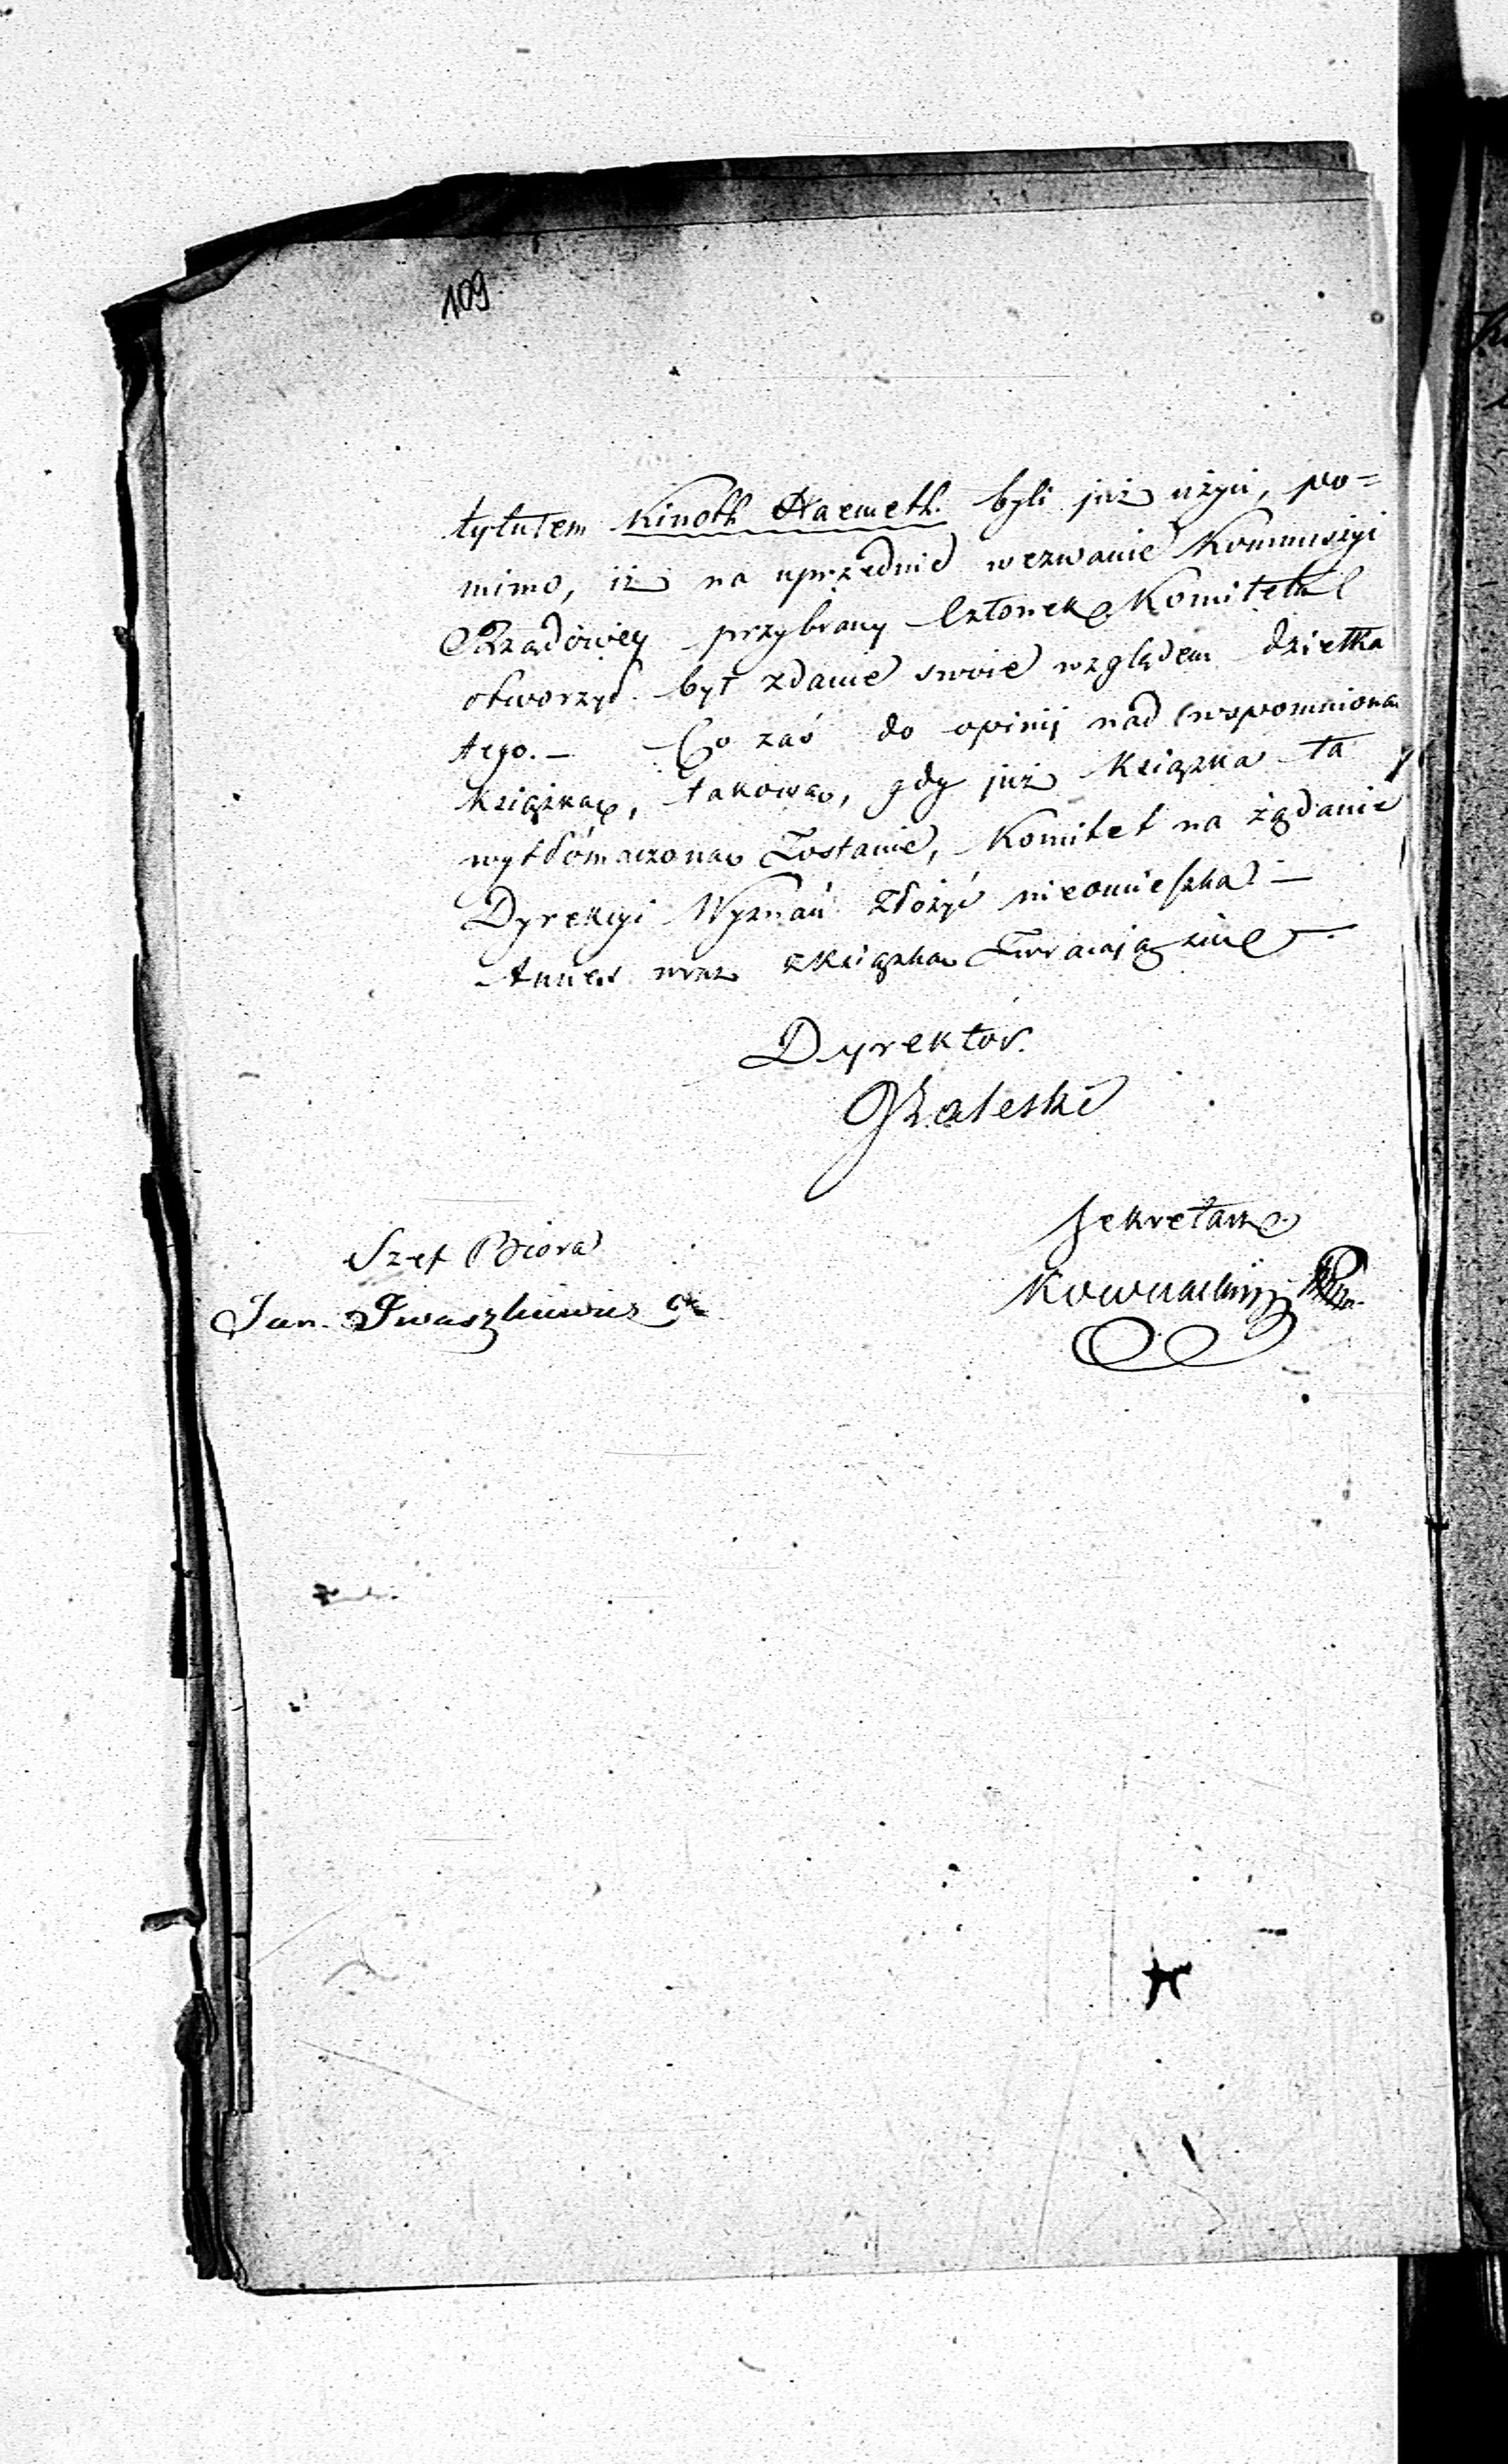 109
tytułem Kinoth Haemeth. byli już użyci, po=
mimo, iż na uprzednie wezwanie Kommissyi
Rządowey przybrany Członek Komitetu
otworzył był zdanie swoie względem dziełka
tego. — Co zaś do opinij nad wspomnioną
Książką, takową, gdy już Książka ta
wytłómaczoną Zostanie, Komitet na żądanie
Dyrekcyi Wyznań złożyć nieomieszka. —
Annex wraz z Książką Zwracają się —
Dyrektor.
JZaleski
Sekretarz
Szef Bióra
Kownacki
Jan. Iwaszkiewicz